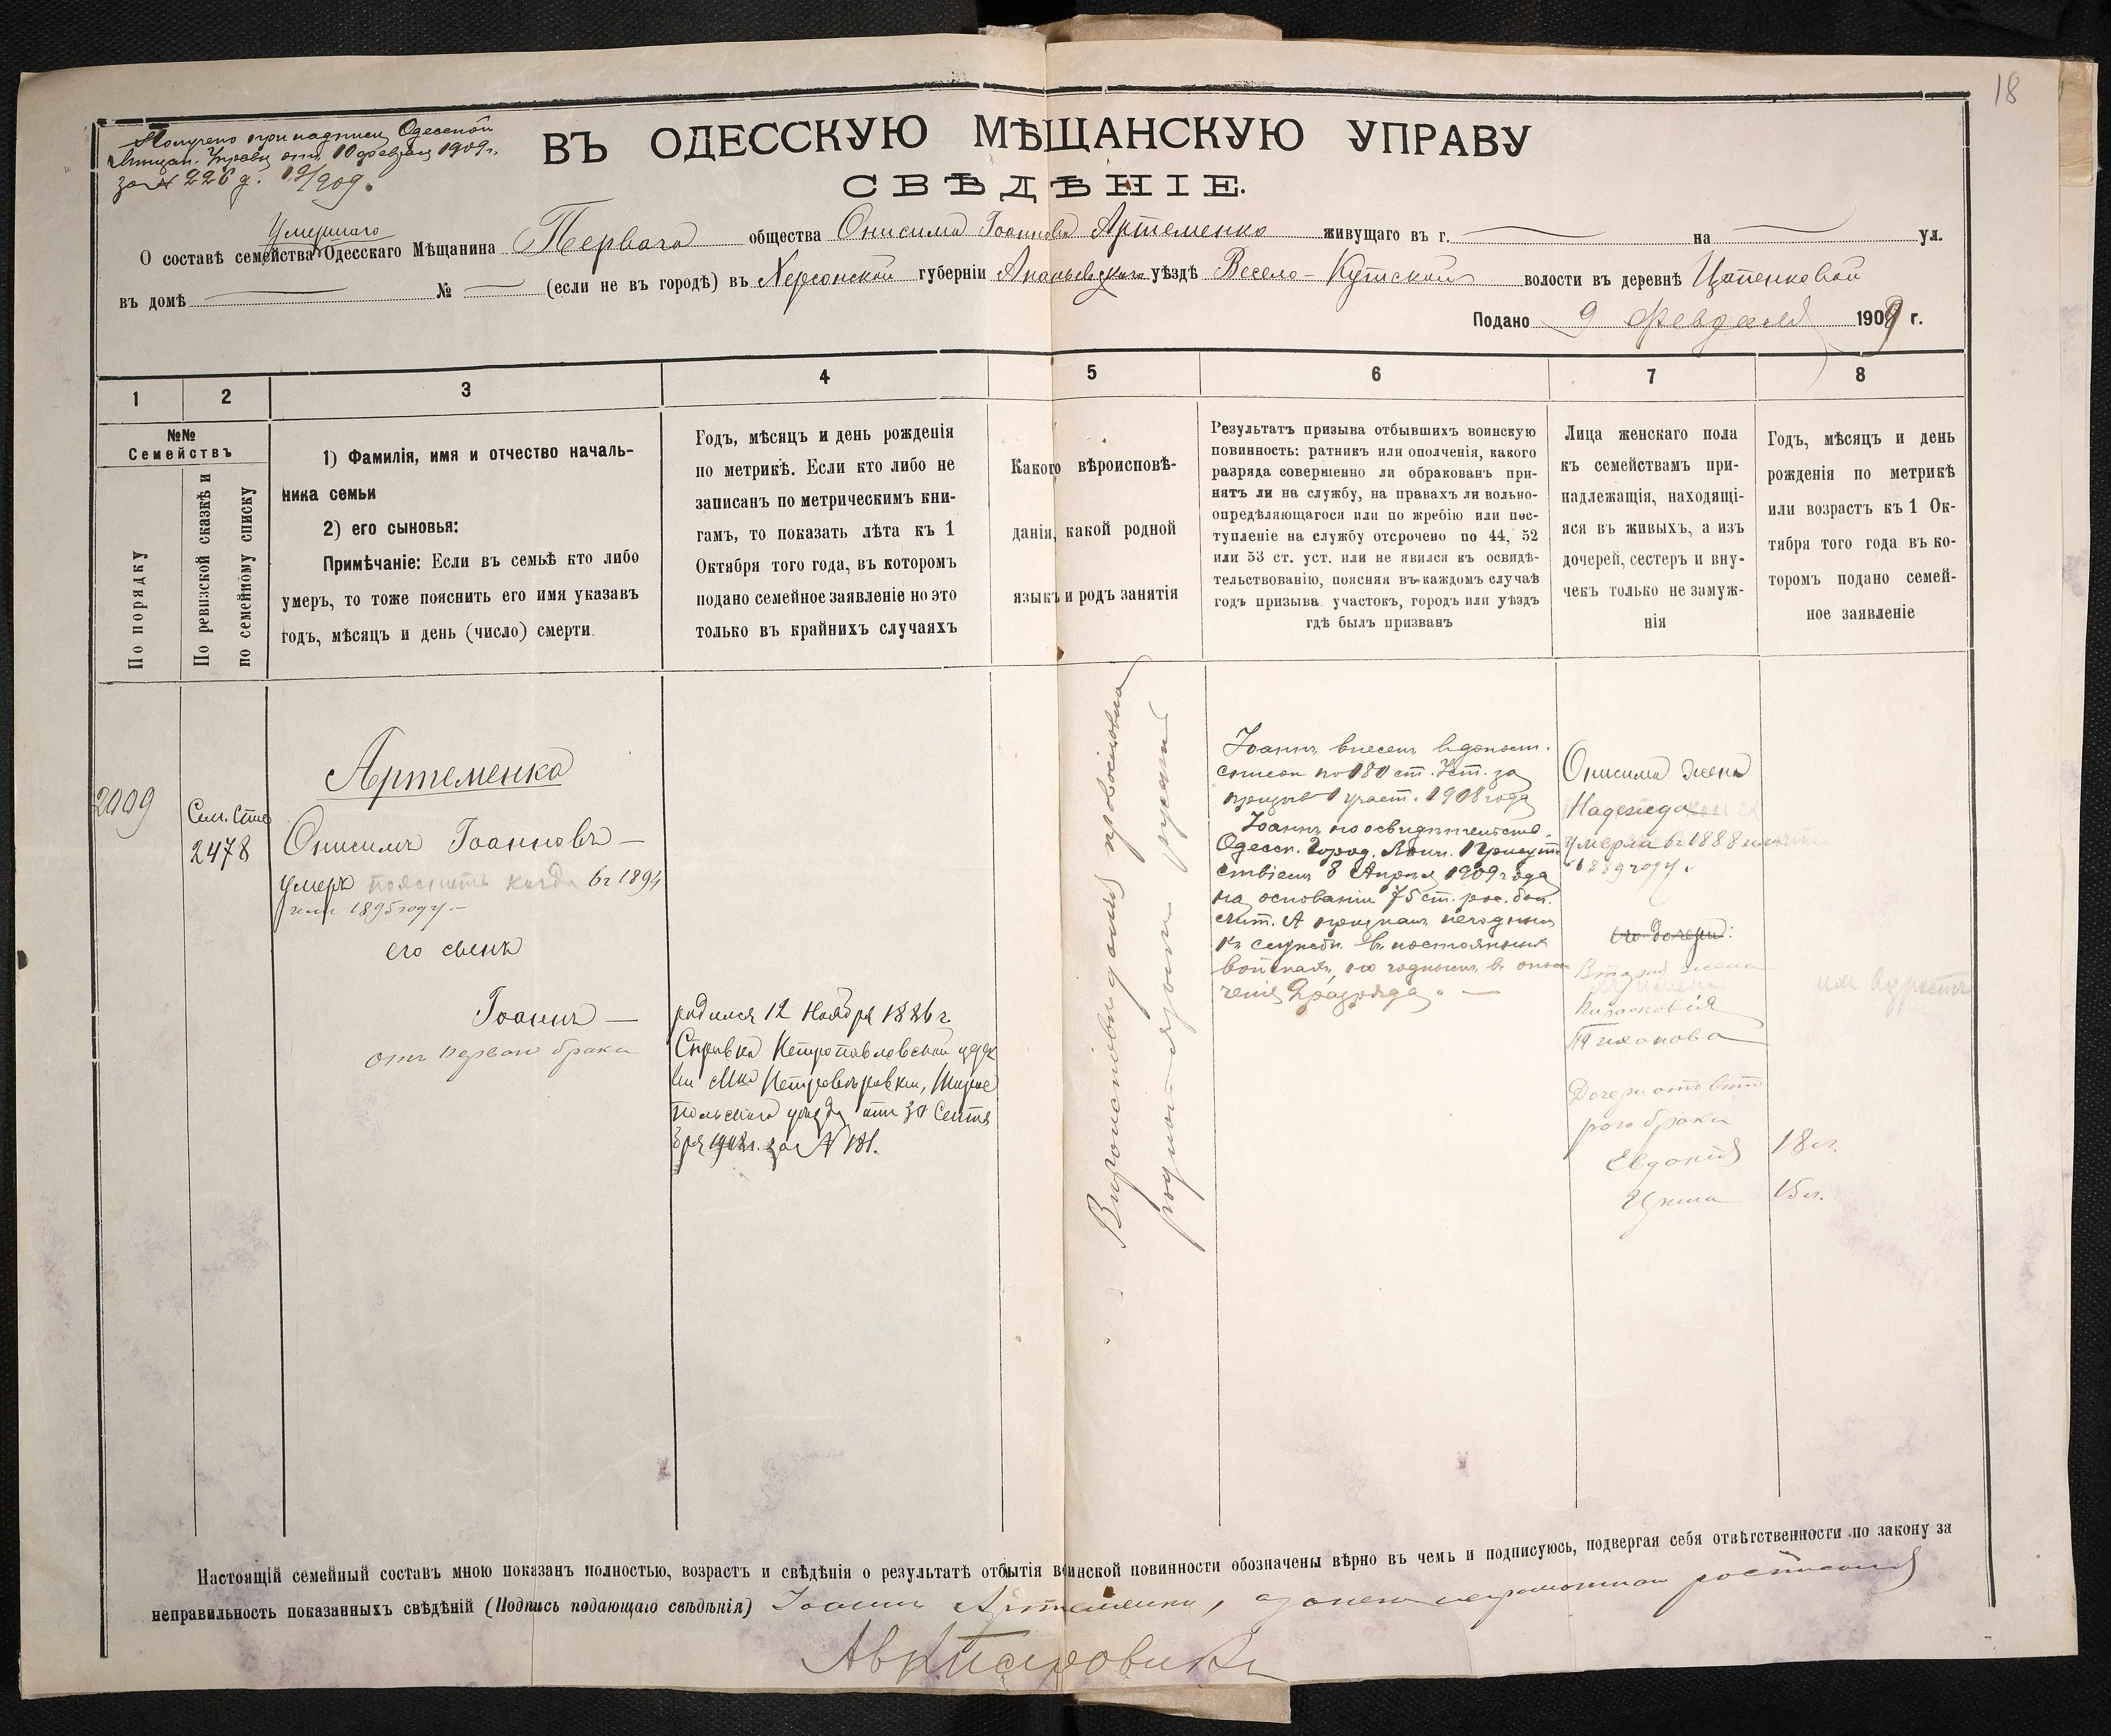 18
Получено при надписи Одесской
Мѣщан. Управы отъ 10 февраля 1909 г.
за № 226 д. 12/909.
ВЪ ОДЕССКУЮ МѢЩАНСКУЮ УПРАВУ
СВѢДѢНІЕ.
умершаго
О составѣ семейства Одесскаго Мѣщанина Перваго общества Онисима Іоаннова Артеменко живущаго въ г. на ул.
въ домѣ № (если не въ городѣ) въ Херсонской губерніи Ананьевскаго уѣздѣ Весело-Кутской волости въ деревнѣ Цапенковой
Подано 9 февраля 1909 г.
1 2 3 4 5 6 7 8
№№
Семействъ
По порядку
По ревизской сказкѣ и
по семейному списку
1) Фамилія, имя и отчество началь-
ника семьи
2) его сыновья:
Примѣчаніе: Если въ семьѣ кто либо
умеръ, то тоже пояснить его имя указавъ
годъ, мѣсяцъ и день (число) смерти.
Годъ, мѣсяцъ и день рожденія
по метрикѣ. Если кто либо не
записанъ по метрическимъ кни-
гамъ, то показать лѣта къ 1
Октября того года, въ котором
подано семейное заявленіе но это
только въ крайнихъ случаяхъ
Какого вѣроисповѣ-
данія, какой родной
языкъ и родъ занятія
Результатъ призыва отбывшихъ воинскую
повинность: ратникъ или ополченія, какого
разряда совершенно ли обракованъ при-
нятъ ли на службу, на правахъ ли вольно-
опредѣляющагося или по жребію или пос-
тупленіе на службу отсрочено по 44, 52
или 53 ст. уст. или не явился къ освидѣ-
тельствованію, поясняя въ каждомъ случаѣ
годъ призыва участокъ, городъ или уѣздъ
гдѣ былъ призванъ
Лица женскаго пола
къ семействамъ при-
надлежащія, находящі-
яся въ живыхъ, а изъ
дочерей, сестеръ и вну-
чекъ только не замуж-
нія
Годъ, мѣсяцъ и день
рожденія по метрикѣ
или возрастъ къ 1 Ок-
тября того года въ ко-
торомъ подано семей-
ное заявленіе
2009
2478
Артеменко
Онисимъ Іоанновъ —
умеръ пояснить когда въ 1894
или 1895 году. —
его сынъ
Іоаннъ —
отъ перваго брака
родился 12 Ноября 1886 г.
Справка Петропавловской церк
Петровѣровки, Тирас
польскаго уѣзда отъ 30 Сентя
бря 1908 г. за № 181.
Вѣроисповѣданія православнаго
родной языкъ русскій
Іоаннъ внесенъ в дополн.
список по 180 ст. Уст. за
призыв 1 участ. 1908 года
Іоаннъ по освидѣтельств.
Одесск. Город. Воин. Присут
ствіемъ 8 Апрѣля 1909 года
на основаніи 75 ст. рос. бол.
лит. А признанъ негоднымъ
къ службѣ въ постоянныхъ
войскахъ, но годнымъ в опол
ченіе 2 разряда. —
Онисима жена
Надежда
умерла въ 1888 или
1889 году.
его дочери:
Вторая жена
Парасковія
Тихонова
Дочери отъ вто
рого брака
Евдокія 18 л.
Ирина 15 л.
им возрастъ
Настоящій семейный составъ мною показанъ полностью, возрастъ и свѣдѣнія о результатѣ отбытія воинской повинности обозначены вѣрно въ чемъ и подписуюсь, подвергая себя отвѣтственности по закону за
неправильность показанныхъ свѣдѣній (Подпись подающаго свѣдѣнія) Іоаннъ Артеменко, а за него неграмотнаго росписался